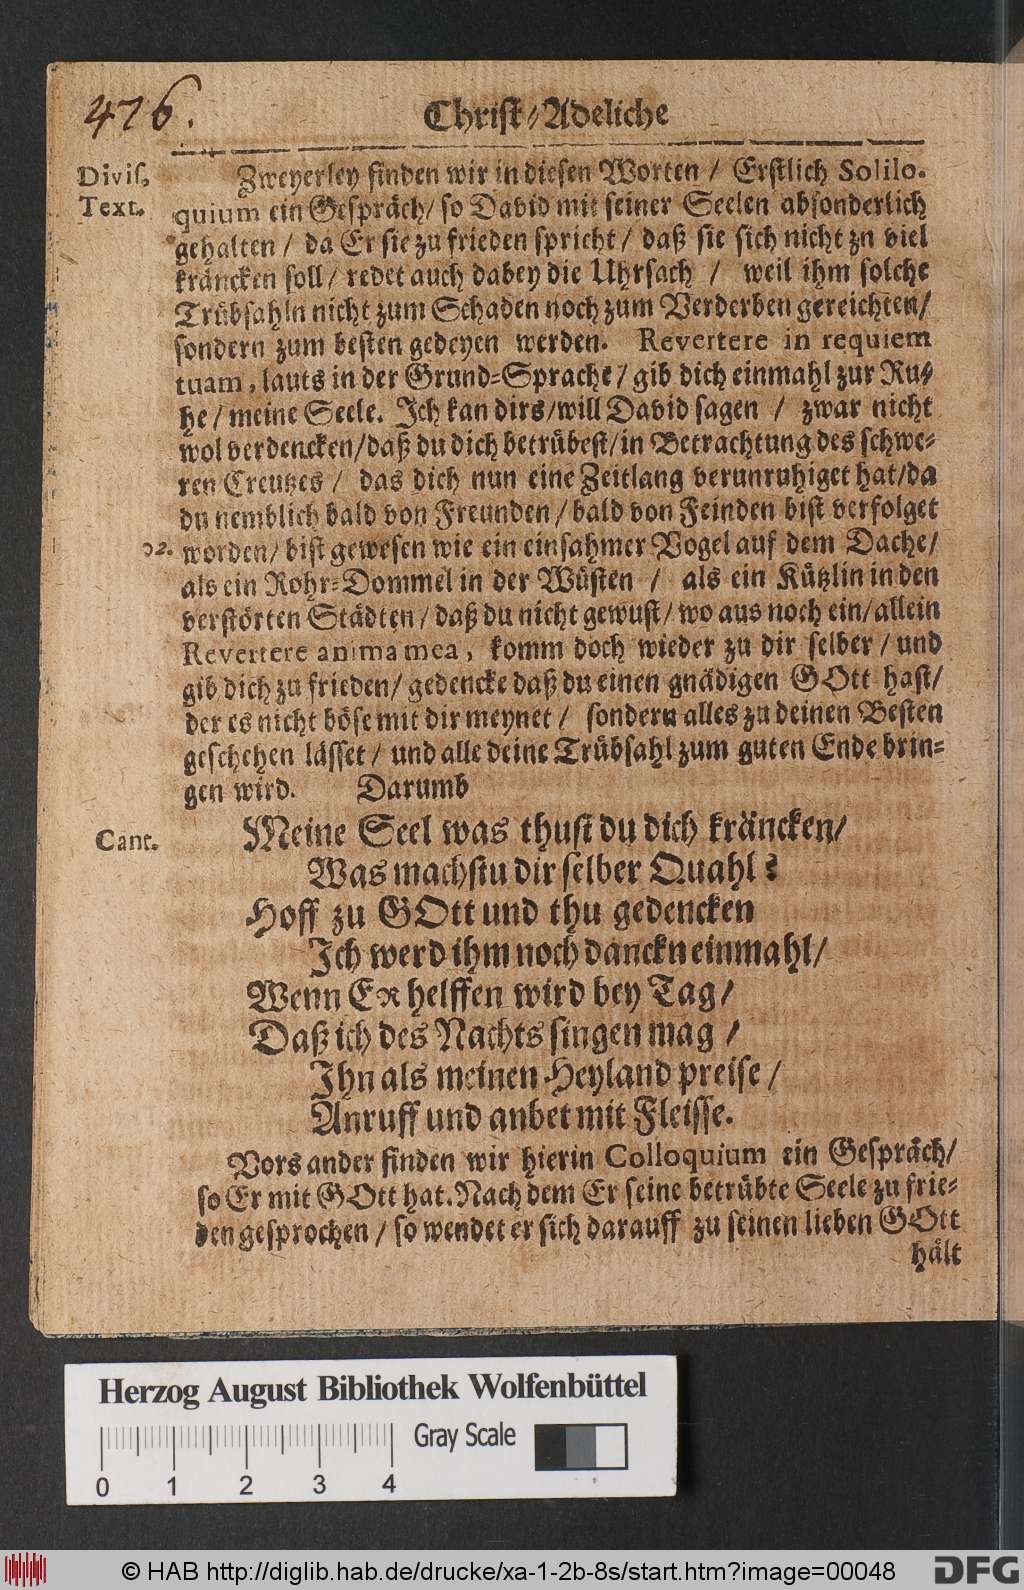 476.
Christ-Adeliche
Divis.
Text.
Zweyerley finden wir in diesen Worten / Erstlich Solilo-
quium ein Gespräch / so David mit seiner Seelen absonderlich
gehalten / da Er sie zu frieden spricht / daß sie sich nicht zu viel
kräncken soll / redet auch dabey die Uhrsach / weil ihm solche
Trübsahln nicht zum Schaden noch zum Verderben gereichten /
sondern zum besten gedeyen werden. Revertere in requiem
tuam, lauts in der Grund-Sprache / gib dich einmahl zur Ru-
he / meine Seele. Ich kan dirs / will David sagen / zwar nicht
wol verdencken / daß du dich betrübest / in Betrachtung des schwe-
ren Creutzes / das dich nun eine Zeitlang verunruhiget hat / da
du nemblich bald von Freunden / bald von Feinden bist verfolget
02.
worden / bist gewesen wie ein einsahmer Vogel auf dem Dache /
als ein Rohr-Dommel in der Wüsten / als ein Kützlin in den
verstörten Städten / daß du nicht gewust / wo aus noch ein / allein
Revertere anima mea, komm doch wieder zu dir selber / und
gib dich zu frieden / gedencke daß du einen gnädigen GOtt hast /
der es nicht böse mit dir meynet / sondern alles zu deinen Besten
geschehen lässet / und alle deine Trübsahl zum guten Ende brin-
gen wird. Darumb
Cant.
Meine Seel was thust du dich kräncken /
Was machstu dir selber Quahl?
Hoff zu GOtt und thu gedencken
Ich werd ihm noch danckn einmahl /
Wenn ER helffen wird bey Tag /
Daß ich des Nachts singen mag /
Ihn als meinen Heyland preise /
Anruff und anbet mit Fleisse.
Vors ander finden wir hierin Colloquium ein Gespräch /
so Er mit GOtt hat. Nach dem Er seine betrübte Seele zu frie-
den gesprochen / so wendet er sich darauff zu seinen lieben GOtt
hält
Herzog August Bibliothek Wolfenbüttel
Gray Scale
0 1 2 3 4
© HAB http://diglib.hab.de/drucke/xa-1-2b-8s/start.htm?image=00048
DFG